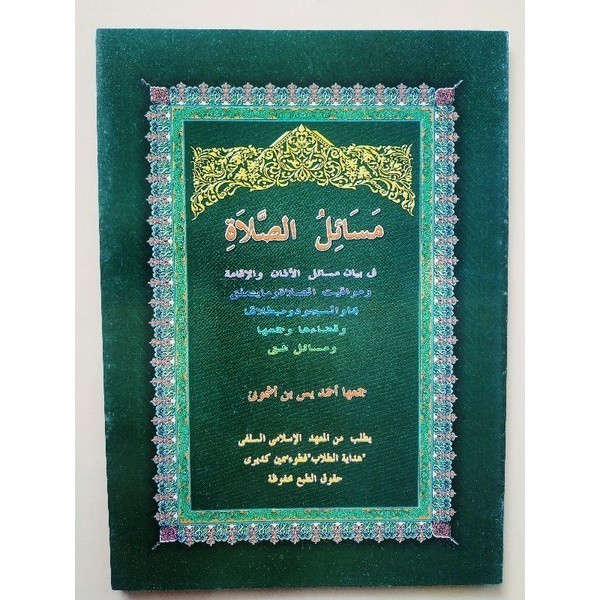 مَسَائِلُ الصَّلَاةِ
فى بيان مسائل الأذان والإقامة
ومواقيت الصلاة ومايتعلق
بها والسجود ومبطلاتها
وقضاءها وجمعها
ومسائل شتى
جمعها أحمد يس بن أشمونى
يطلب من المعهد الإسلامى السلفى
"هداية الطلاب" فطوء سمين كديرى
حقوق الطبع محفوظة